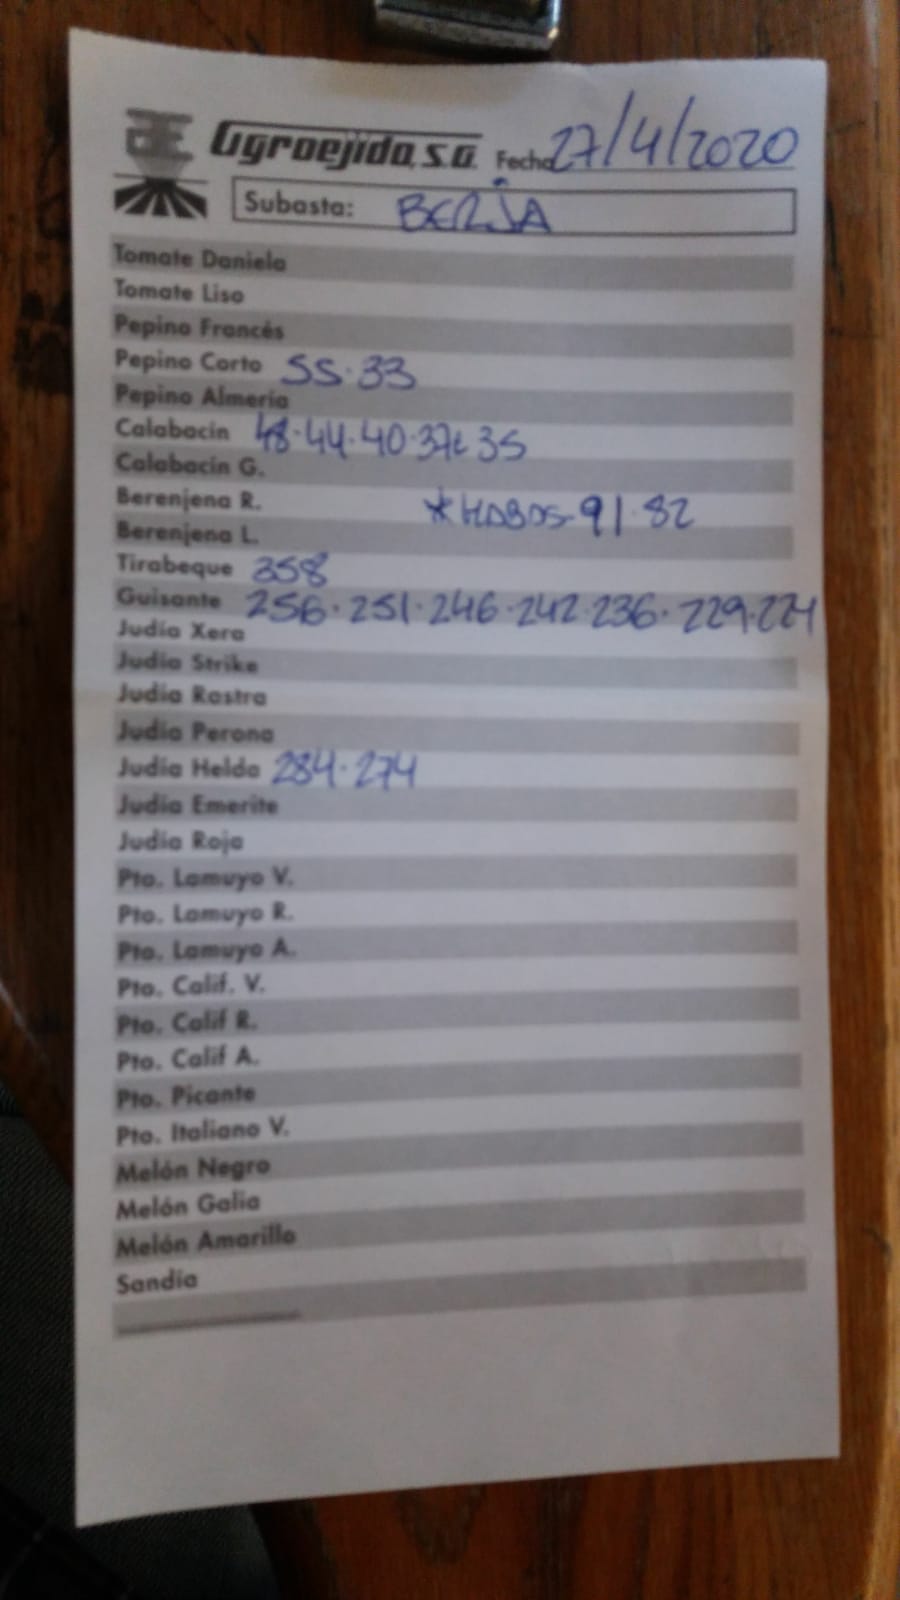 Agroejido, S.A. Fecha 27/4/2020
Subasta: BERJA
Tomate Daniela
Tomate Liso
Pepino Francés
Pepino Corto 55·33
Pepino Almería
Calabacín 48·44·40·37·35
Calabacín G.
Berenjena R. * HABAS-91·82
Berenjena L.
Tirabeque 358
Guisante 256·251·246·242·236·229·224
Judía Xera
Judía Strike
Judía Rastra
Judía Perona
Judía Helda 284·274
Judía Emerite
Judía Roja
Pto. Lamuyo V.
Pto. Lamuyo R.
Pto. Lamuyo A.
Pto. Calif. V.
Pto. Calif R.
Pto. Calif A.
Pto. Picante
Pto. Italiano V.
Melón Negro
Melón Galia
Melón Amarillo
Sandía